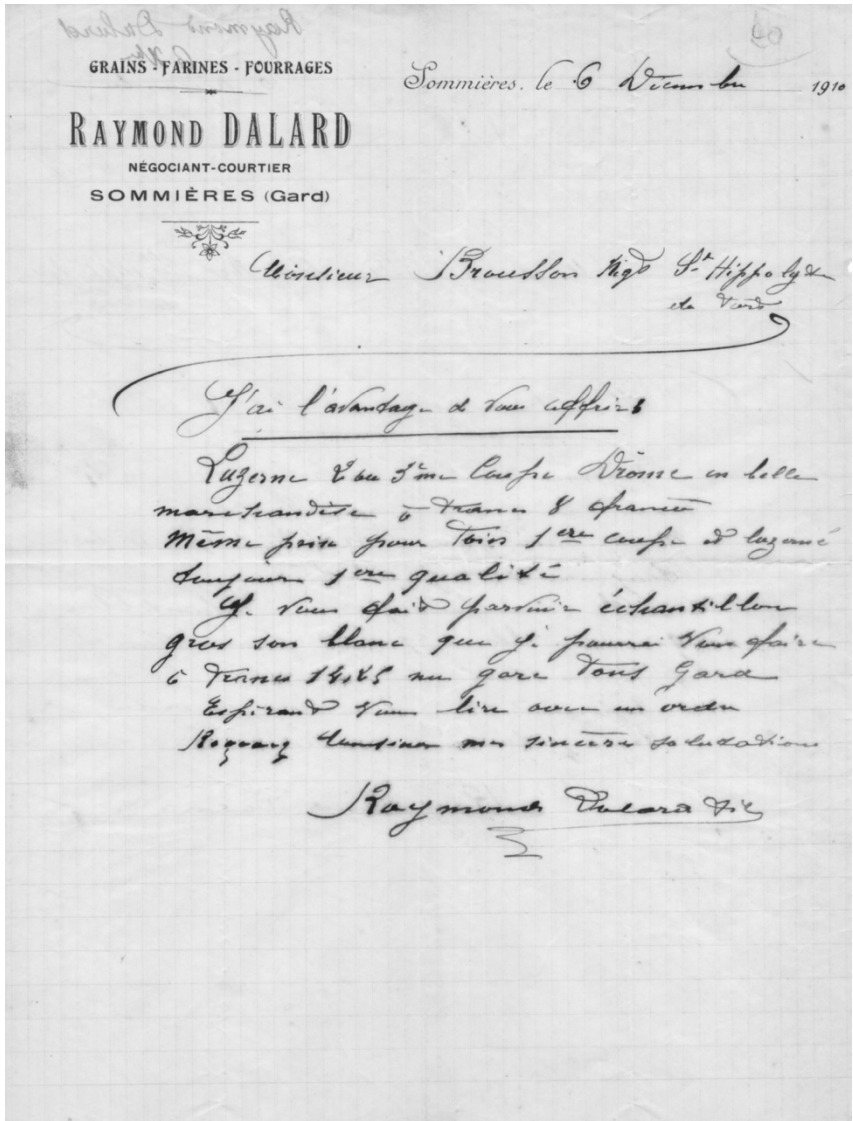 GRAINS - FARINES - FOURRAGES
RAYMOND DALARD
NÉGOCIANT-COURTIER
SOMMIÈRES (Gard)
Sommières, le 6 Décembre 1910
Monsieur Brousson Négt St Hippolyte
du Fort
J'ai l'avantage de vous offrir :
Luzerne 2 ou 3ème Coupe Drôme en belle
marchandise à Francs 8 franco
Même prix pour foin 1ère coupe et luzerné
toujours 1ère qualité
Je vous fait parvenir échantillon
gros son blanc que je pourrai vous faire
à Francs 14,25 nu gare Tous Gard
Espérant vous lire avec un ordre
Recevez Monsieur mes sincères salutations
Raymond Dalard fils